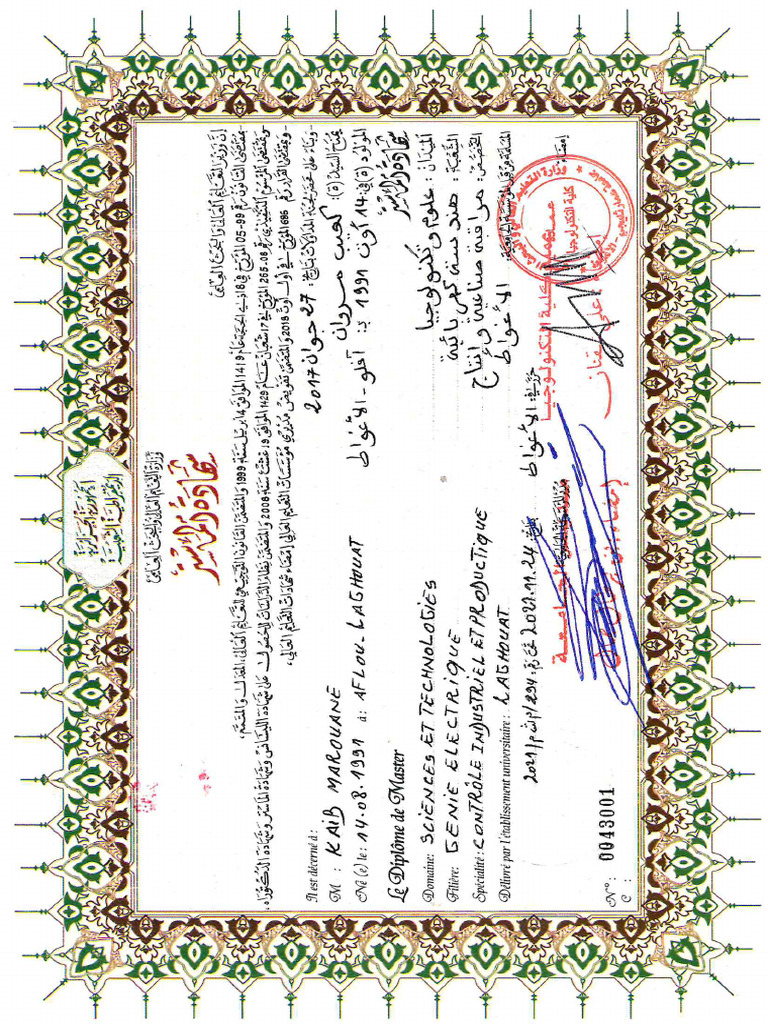 الجمهورية الجزائرية
الديمقراطية الشعبية
وزارة التعليم العالي والبحث العلمي
شهادة الماستر
إن وزير التعليم العالي والبحث العلمي
- بمقتضى القانون رقم 99-05 المؤرخ في 18 ذي الحجة عام 1419 الموافق 4 أبريل سنة 1999 والمتضمن القانون التوجيهي للتعليم العالي، المعدل والمتمم،
- وبمقتضى المرسوم التنفيذي رقم 08-265 المؤرخ في 17 شعبان عام 1429 الموافق 19 غشت سنة 2008 والمتضمن نظام الدراسات للحصول على شهادة الليسانس وشهادة الماستر وشهادة الدكتوراه،
- وبمقتضى القرار رقم 686 المؤرخ في أول أوت 2018 والمتضمن تفويض مديري مؤسسات التعليم العالي إمضاء شهادات التعليم العالي،
- وبناء على محضر لجنة المداولات بتاريخ: 27 جوان 2017
Il est décerné à :
يمنح السيد (ة): كعيب مروان
M. : KAIB MAROUANE
المولود (ة) في: 14 أوت 1991 بـ: آفلو - الأغواط
Né (e) le : 14.08.1991 à : AFLOU - LAGHOUAT
شهادة الماستر
Le Diplôme de Master
الميدان: علوم وتكنولوجيا
Domaine: SCIENCES ET TECHNOLOGIES
الشعبة: هندسة كهربائية
Filière: GENIE ELECTRIQUE
التخصص: مراقبة صناعية وإنتاج
Spécialité : CONTRÔLE INDUSTRIEL ET PRODUCTIQUE
الأغواط
Délivré par l'établissement universitaire : LAGHOUAT
حرر في: الأغواط بتاريخ: 2021.11.24 تحت رقم: 294/م ش م/2021
إمضاء
كلية التكنولوجيا
N° : 0043001
C :